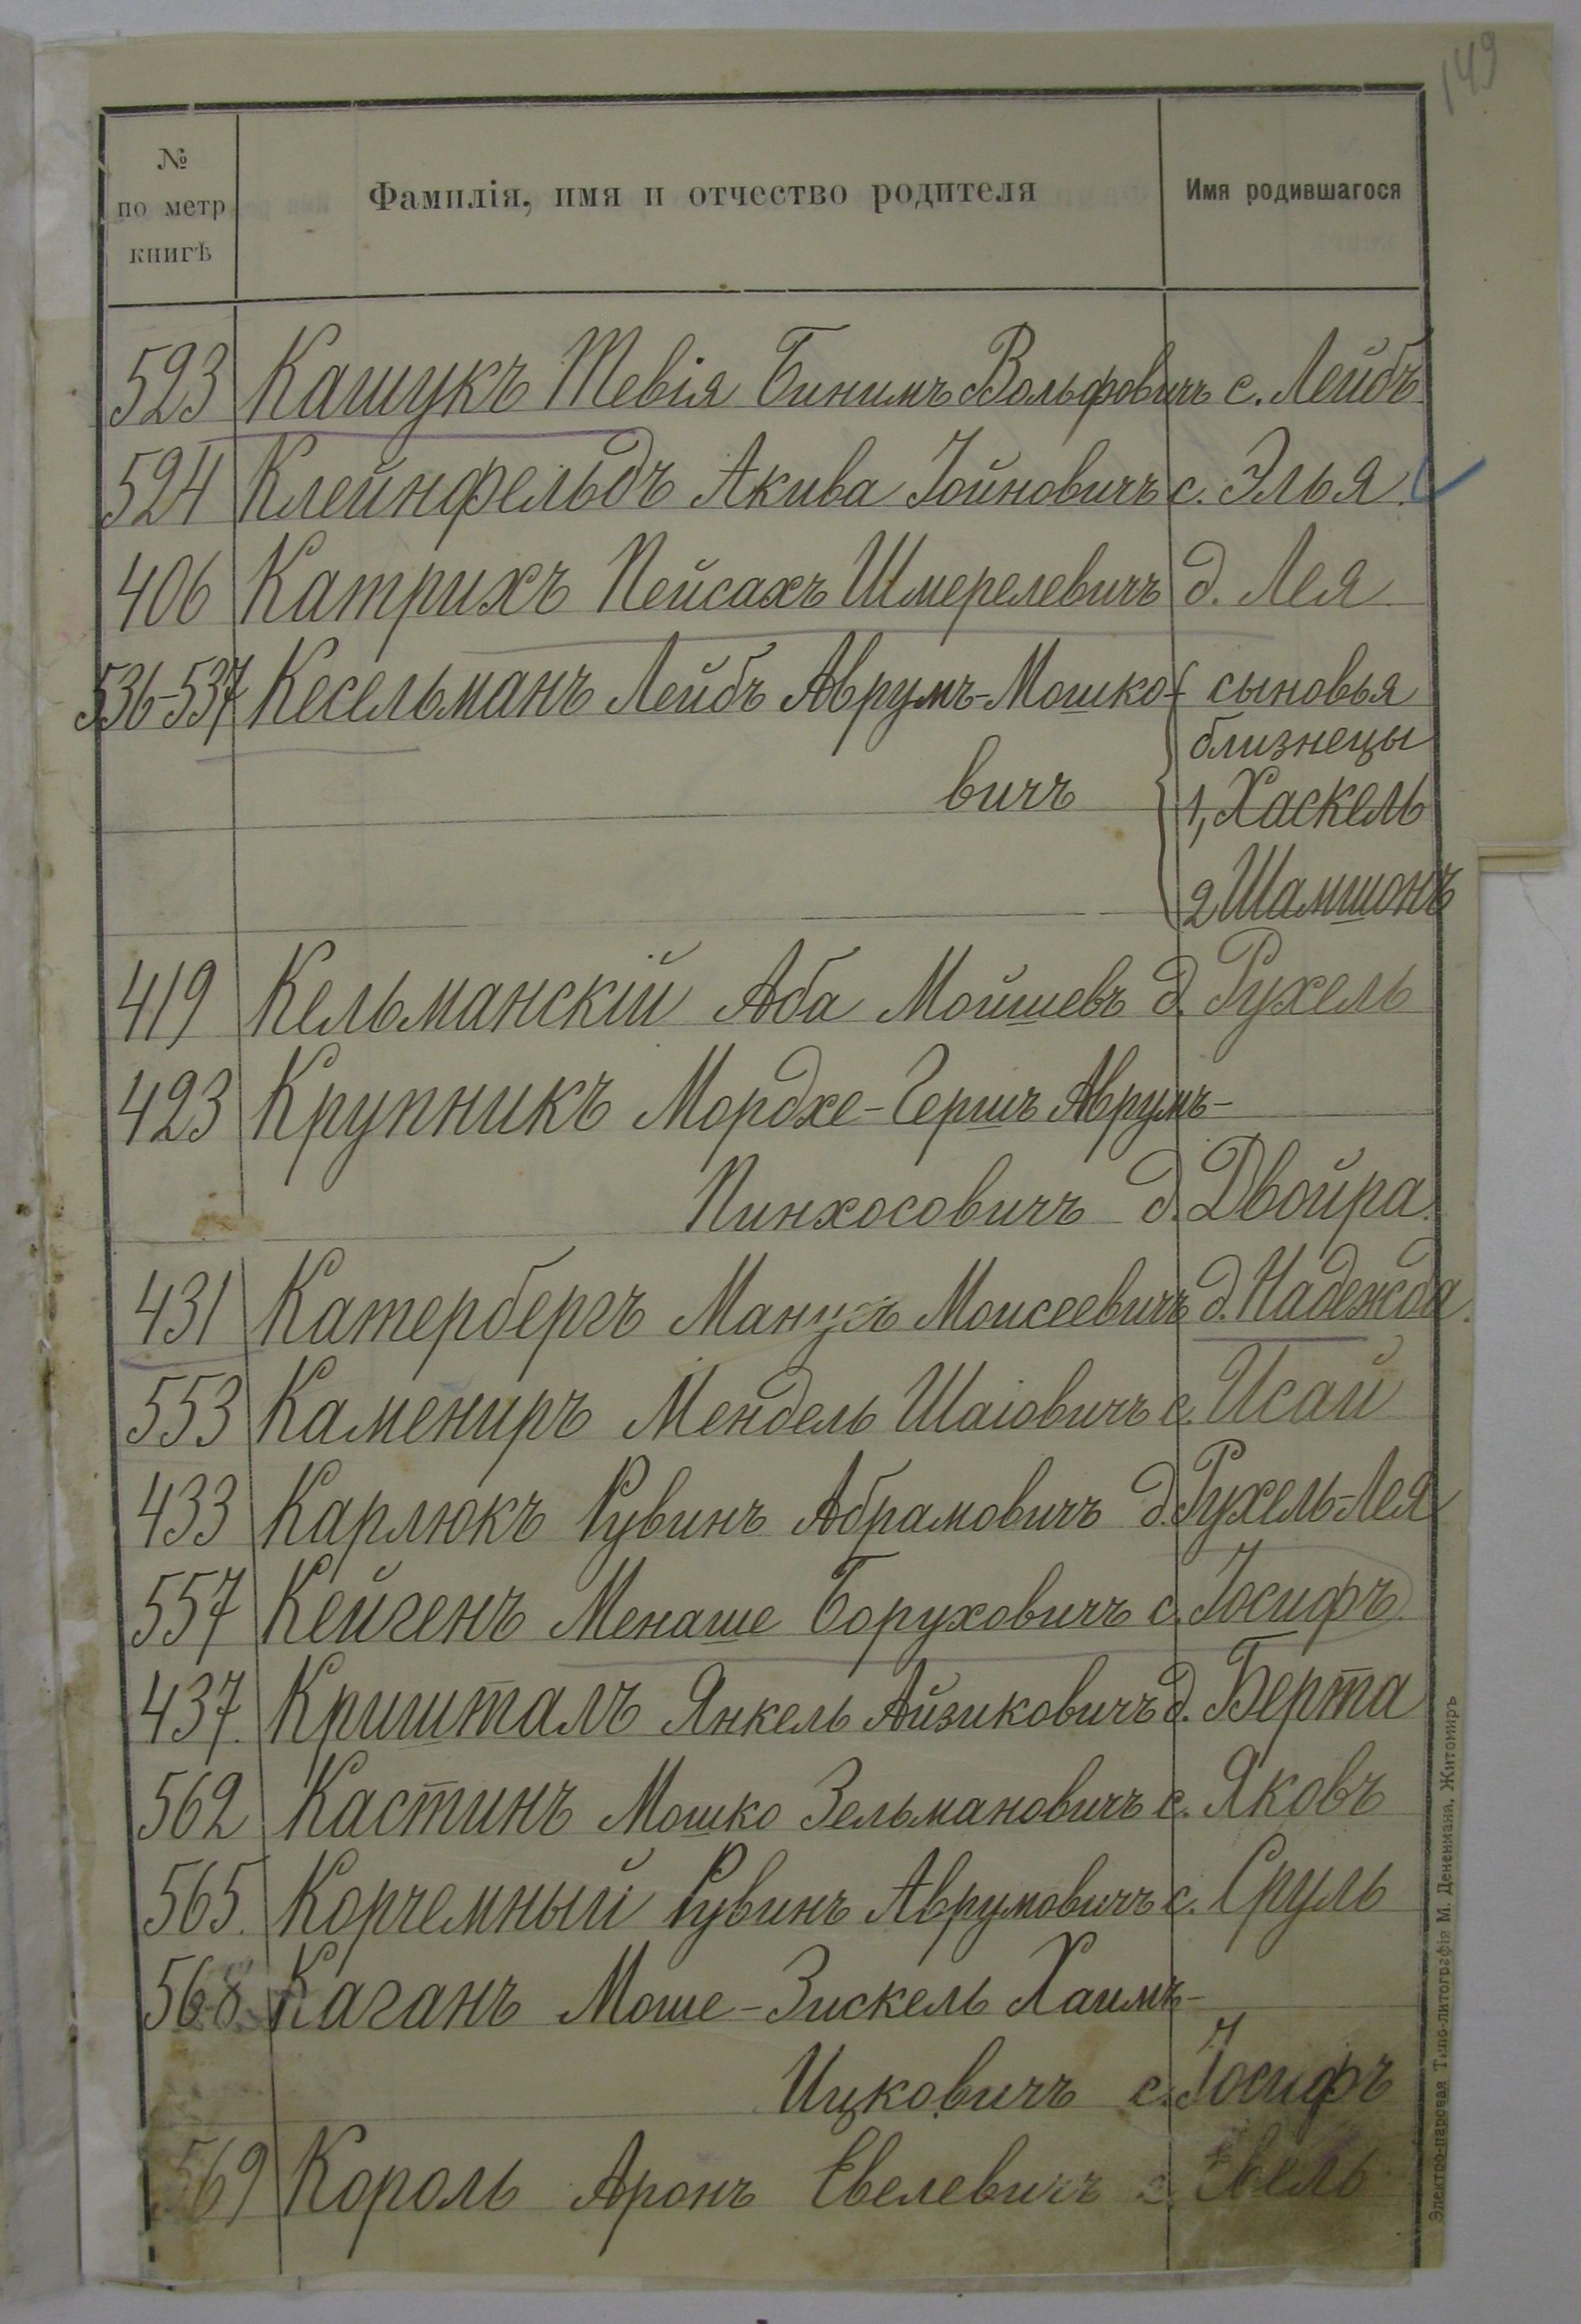 149
№ по метр книгѣ
Фамилія, имя и отчество родителя
Имя родившагося
523 Кашукъ Тевія Бинимъ Вольфовичъ с. Лейбъ
524 Клейнфельдъ Акива Іойновичъ с. Элья.
406 Катрихъ Пейсахъ Шмерелевичъ д. Лея
536-537 Кесельманъ Лейбъ Аврумъ-Мошко- сыновья
близнецы
вичъ 1, Хаскель
2 Шамшонъ
419 Кельманскій Аба Мойшевъ д. Рухель
423 Крупникъ Мордхе-Гершъ Аврумъ-
Пинхосовичъ д. Двойра.
431 Катербергъ Манусъ Моисеевичъ д. Надежда.
553 Камениръ Мендель Шаіовичъ с. Исай
433 Карлюкъ Рувинъ Абрамовичъ д. Рухель-Лея
557 Кейгенъ Менаше Боруховичъ с. Іосифъ
437. Кришталъ Янкель Айзиковичъ д. Берта
562 Кастинъ Мошко Зельмановичъ с. Яковъ
565. Корчемный Рувинъ Аврумовичъ с. Сруль
568 Каганъ Моше-Зискель Хаимъ-
Ицковичъ с. Іосифъ
569 Король Аронъ Евелевичъ с.
Электро-паровая Типо-литографія М. Дененмана, Житомиръ